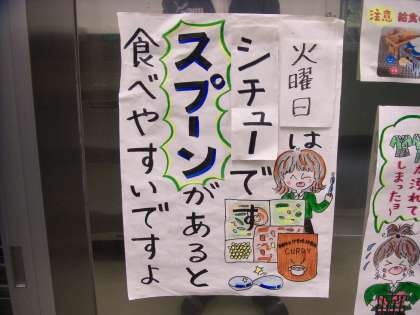 火曜日は
シチューです
スプーンがあると
食べやすいですよ
CURRY
注意 給食
汚れて
しまった